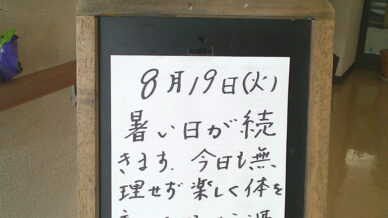 8月19日(火)
暑い日が続
きます.今日も無
理せず楽しく体を